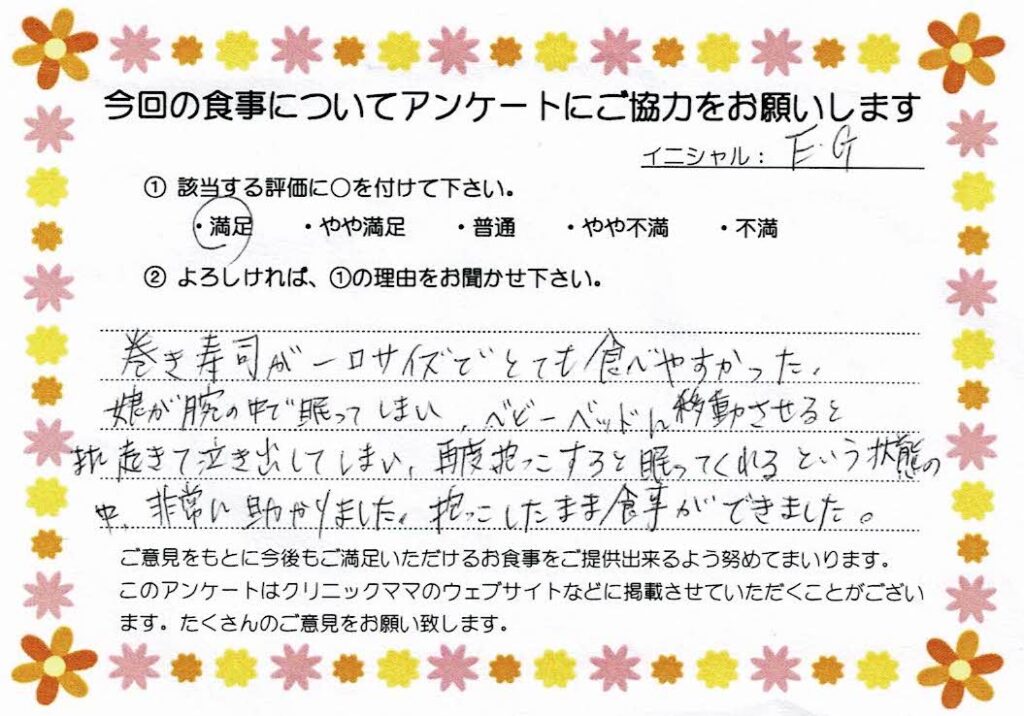 今回の食事についてアンケートにご協力をお願いします
イニシャル: E.G
① 該当する評価に○を付けて下さい。
・満足 ・やや満足 ・普通 ・やや不満 ・不満
② よろしければ、①の理由をお聞かせ下さい。
巻き寿司が一口サイズでとても食べやすかった、
娘が腕の中で眠ってしまい、ベビーベッドに移動させると
起きて泣き出してしまい、再度抱っこすると眠ってくれるという状態の
中、非常に助かりました。抱っこしたまま食事ができました。
ご意見をもとに今後もご満足いただけるお食事をご提供出来るよう努めてまいります。
このアンケートはクリニックママのウェブサイトなどに掲載させていただくことがござい
ます。たくさんのご意見をお願い致します。